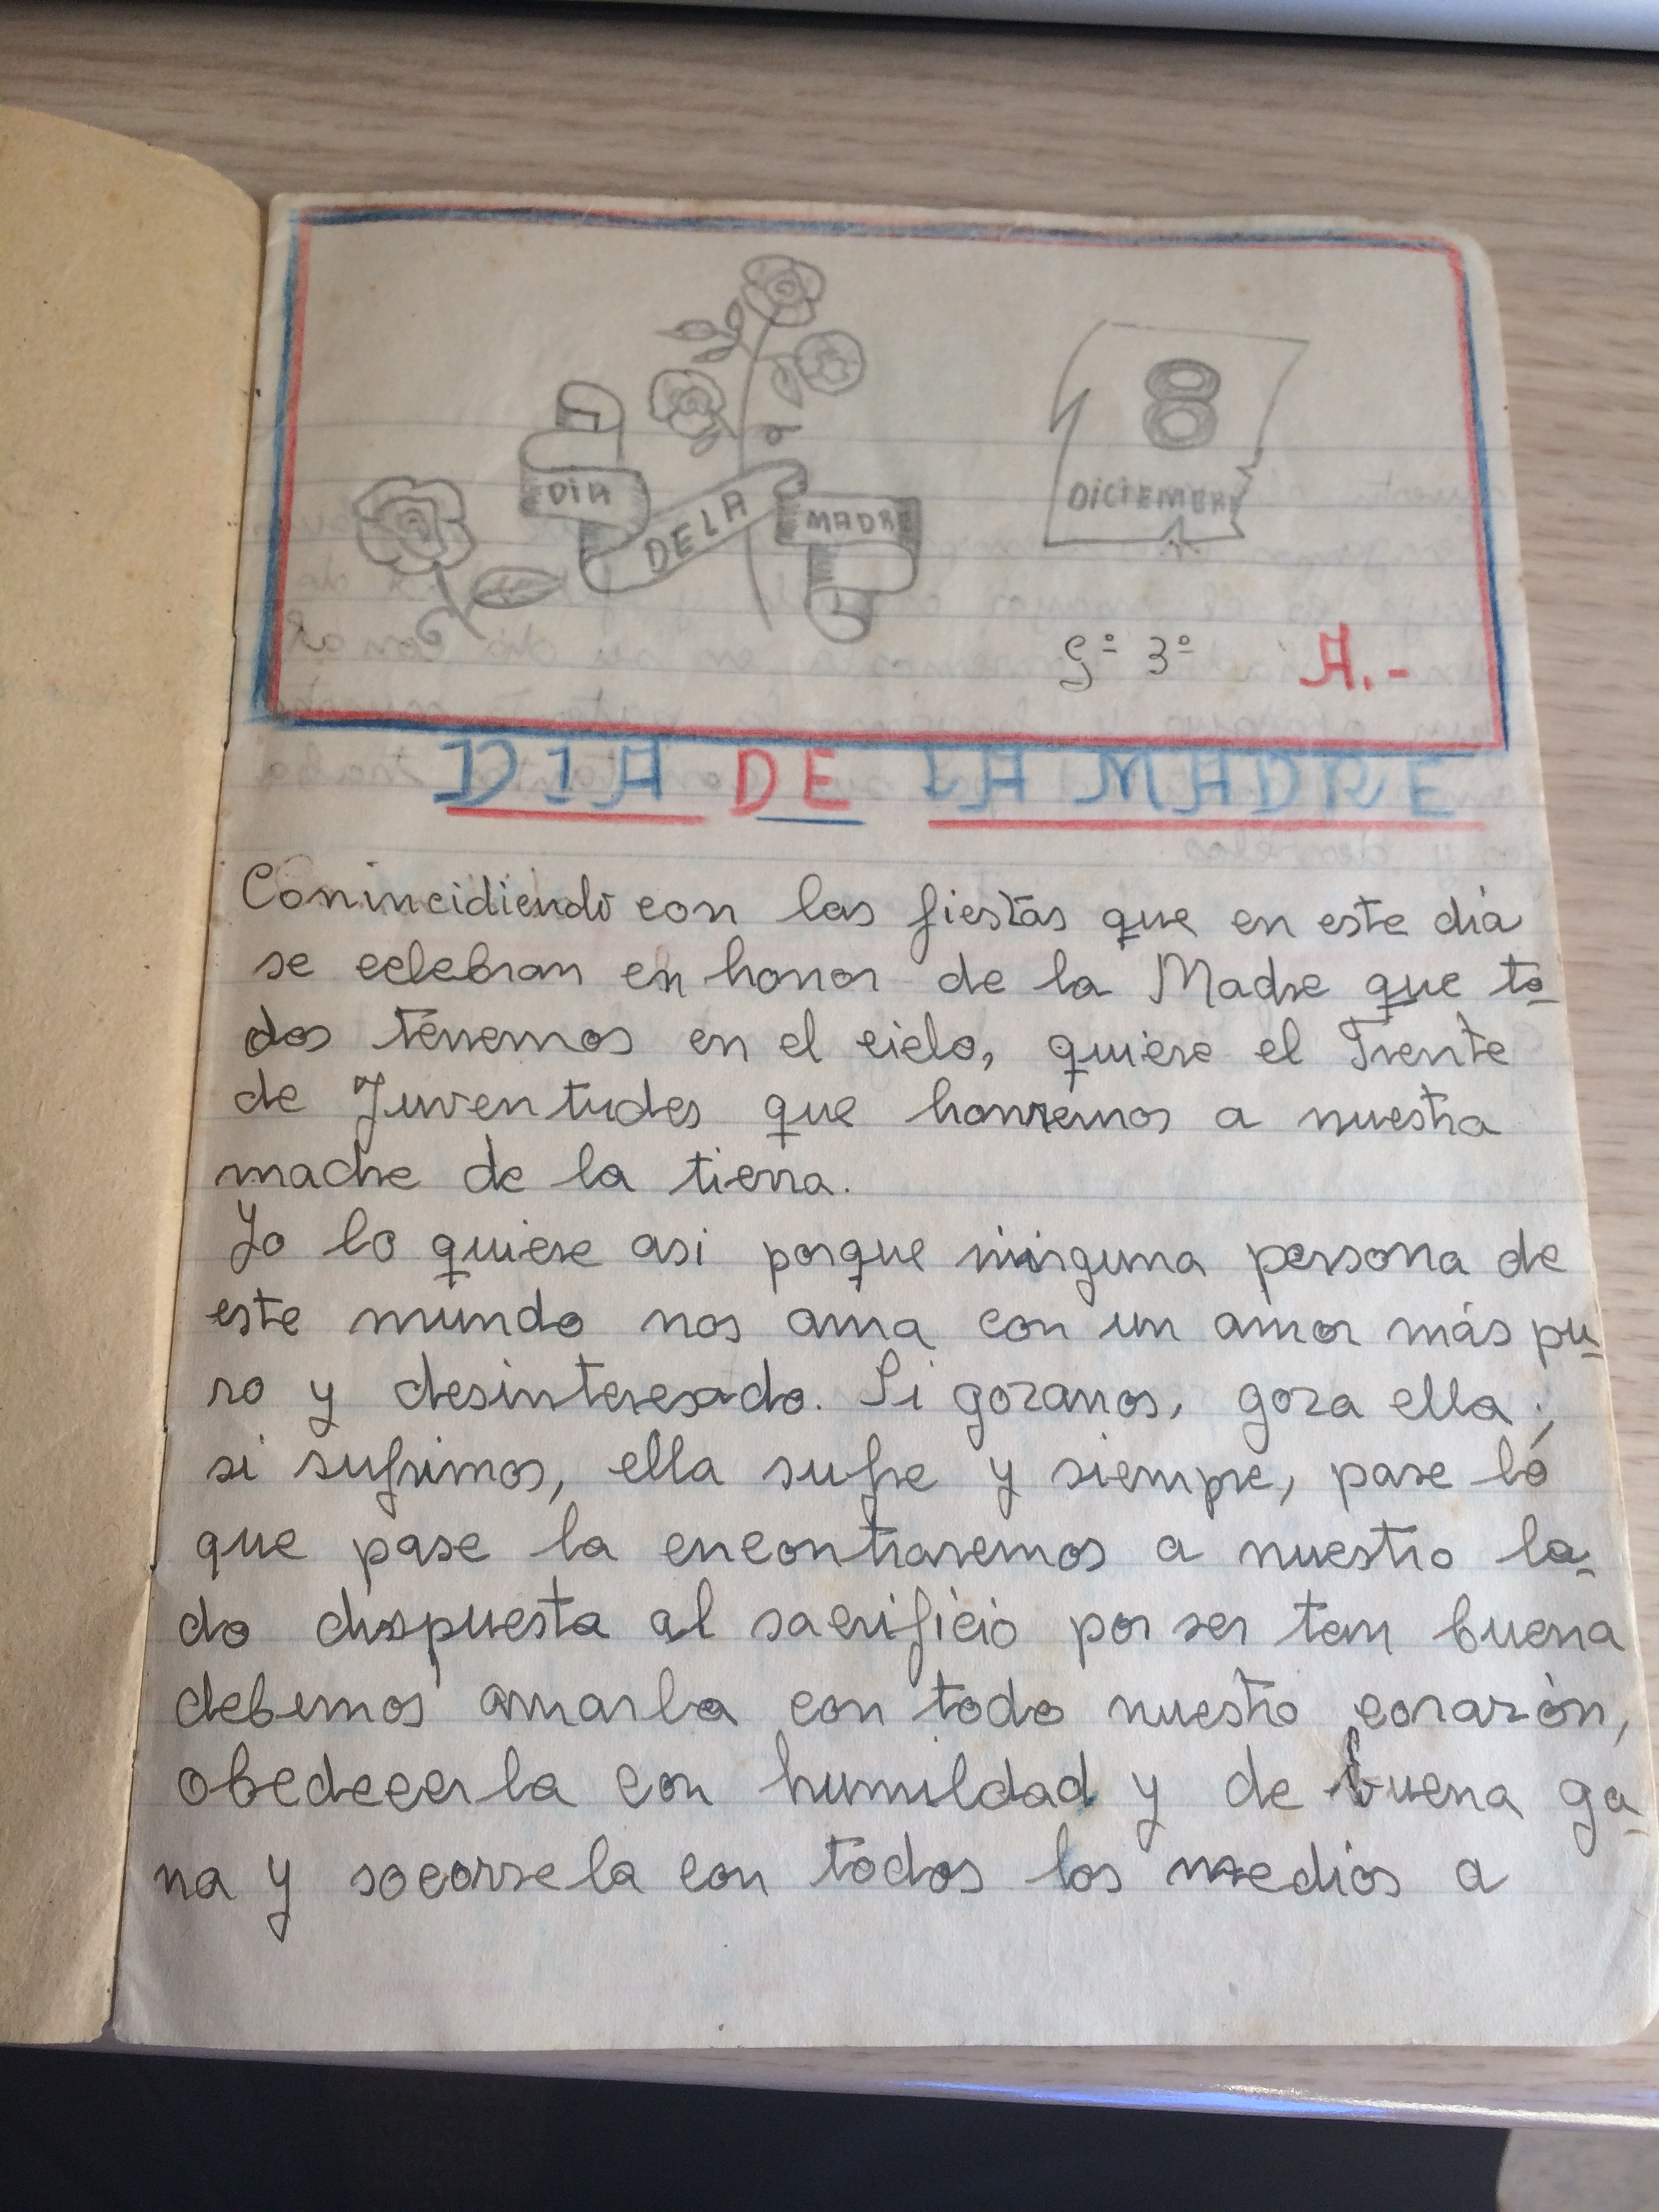 8
DIA
DE LA
MADRE
DICIEMBRE
Gº 3º A.-
DIA DE LA MADRE
Conincidiendo con las fiestas que en este dia
se celebran en honor de la Madre que to-
dos tenemos en el cielo, quiere el Frente
de Juventudes que honremos a nuestra
madre de la tierra.
Yo lo quiere asi porque ninguna persona de
este mundo nos ama con un amor más pu-
ro y desinteresado. Si gozanos, goza ella;
si sufrimos, ella sufre y siempre, pase lo
que pase la encontraremos a nuestro la-
do dispuesta al sacrificio por ser tan buena
debemos amarla con todo nuestro corazón,
obedecerla con humildad y de buena ga-
na y socorrela con todos los medios a